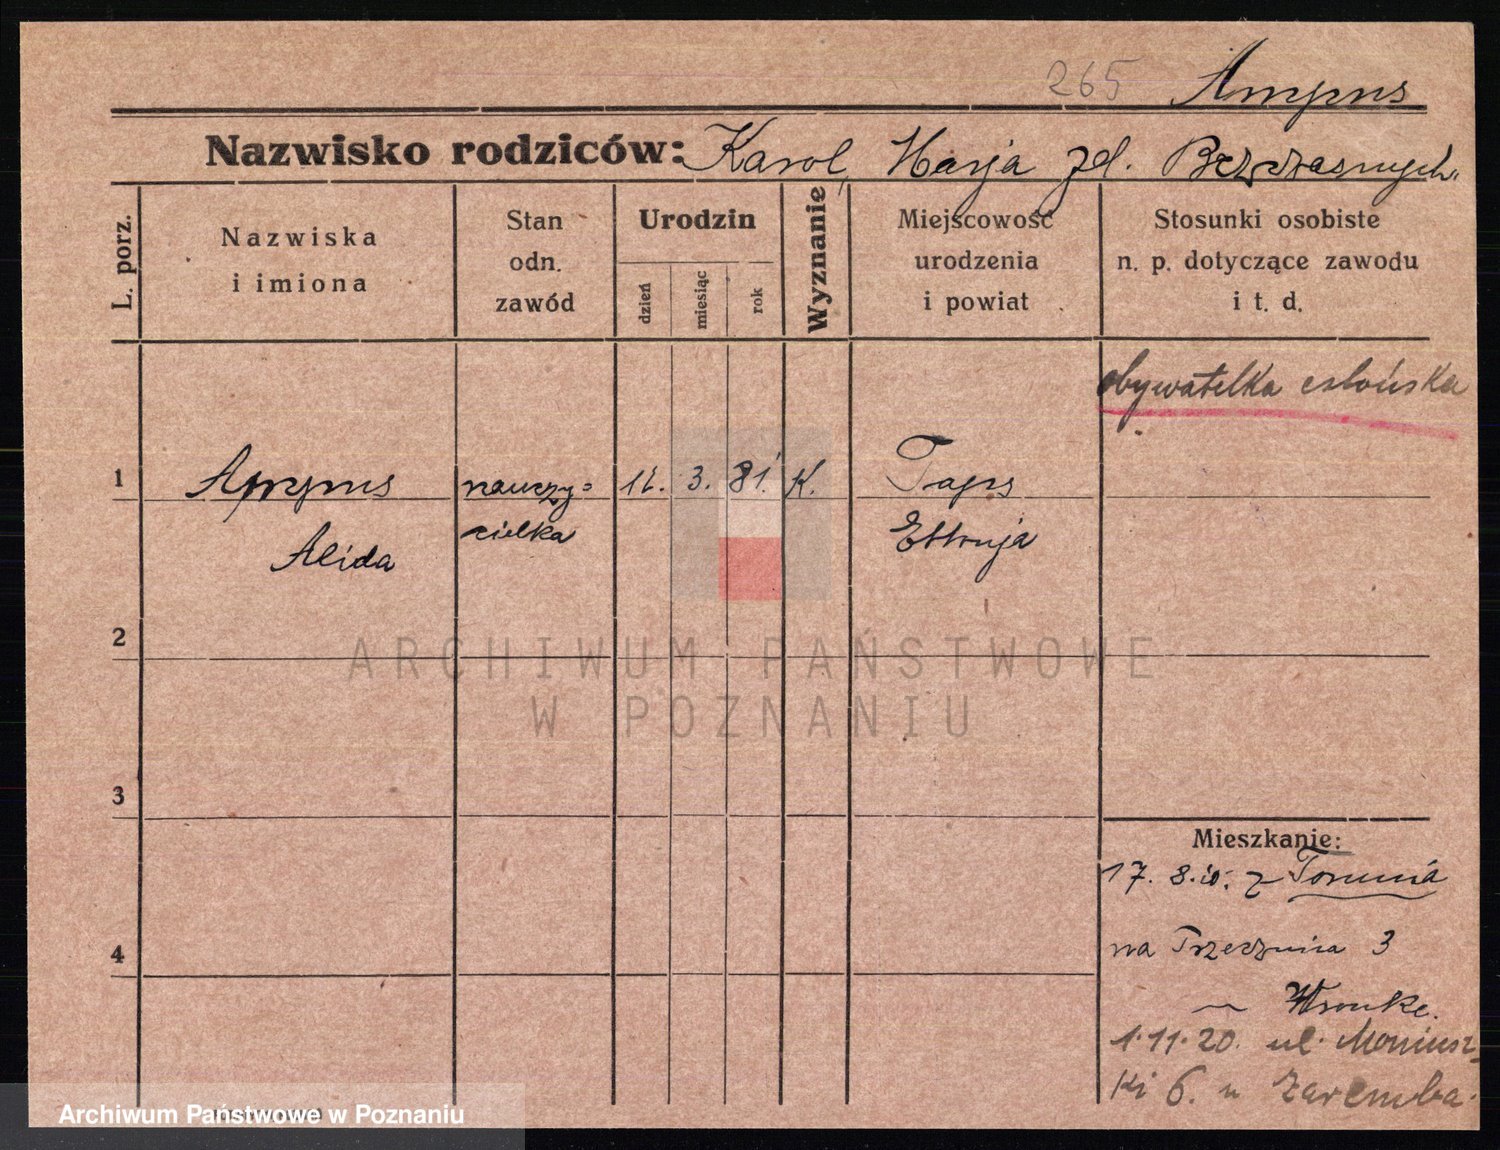 265 Ampus
Nazwisko rodziców: Karol, Marja zd. Bezczasnych
L. porz.
Nazwiska
i imiona
Stan
odn.
zawód
Urodzin
dzień
miesiąc
rok
Wyznanie
Miejscowość
urodzenia
i powiat
Stosunki osobiste
n. p. dotyczące zawodu
i t. d.
obywatelka estońska
1 Ampus nauczy= 3. 81. K. Taps
Alida cielka Estonja
2
ARCHIWUM PAŃSTWOWE
W POZNANIU
3
Mieszkanie:
17. 8. z Torunia
4
na 3
Wronke.
1.11.20. ul. Moniusz-
ki 6. u Zaremba.
Archiwum Państwowe w Poznaniu